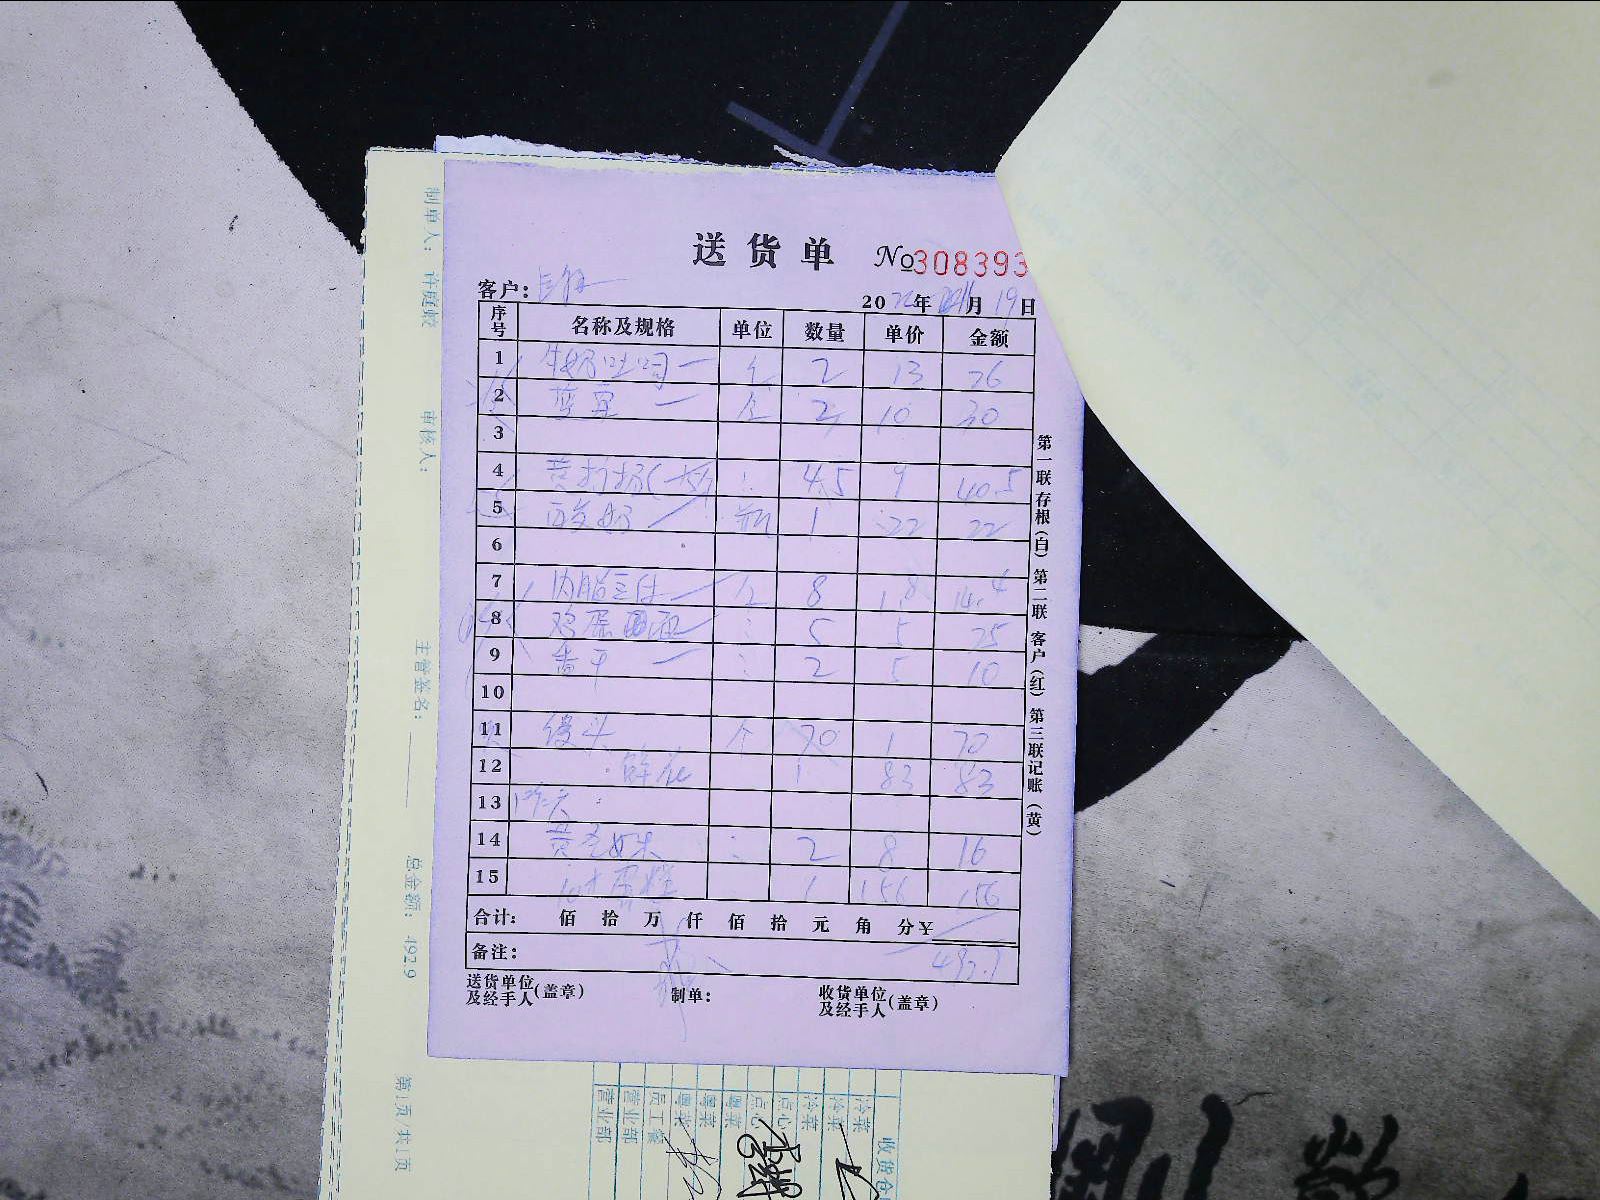 送货单 №308393
客户:
20 年 11月 19日
序号 名称及规格 单位 数量 单价 金额
1 牛奶吐司 个 2 13 26
2 蓝莓 个 2 10 30
3
4 4.5 9 40.5
5 酸奶 瓶 1 22 22
6
7 内脂豆付 8 1.8 14.4
8 鸡蛋 5 5 25
9 香干 2 5 10
10
11 馒头 个 70 1 70
12 鲜花 1 83 83
13 昨天
14 2 8 16
15 10寸蛋糕 1 156 156
合计: 佰 拾 万 仟 佰 拾 元 角 分 ¥
备注: 492.9
送货单位及经手人(盖章) 制单: 收货单位及经手人(盖章)
第一联存根(白) 第二联客户(红) 第三联记账(黄)
制单人: 许庭蛟
审核人:
主管签名:
总金额: 492.9
第1页/共1页
收货仓
冷菜
冷菜
冷菜
点心
点心
粤菜
粤菜
粤菜
员工餐
营业部
营业部